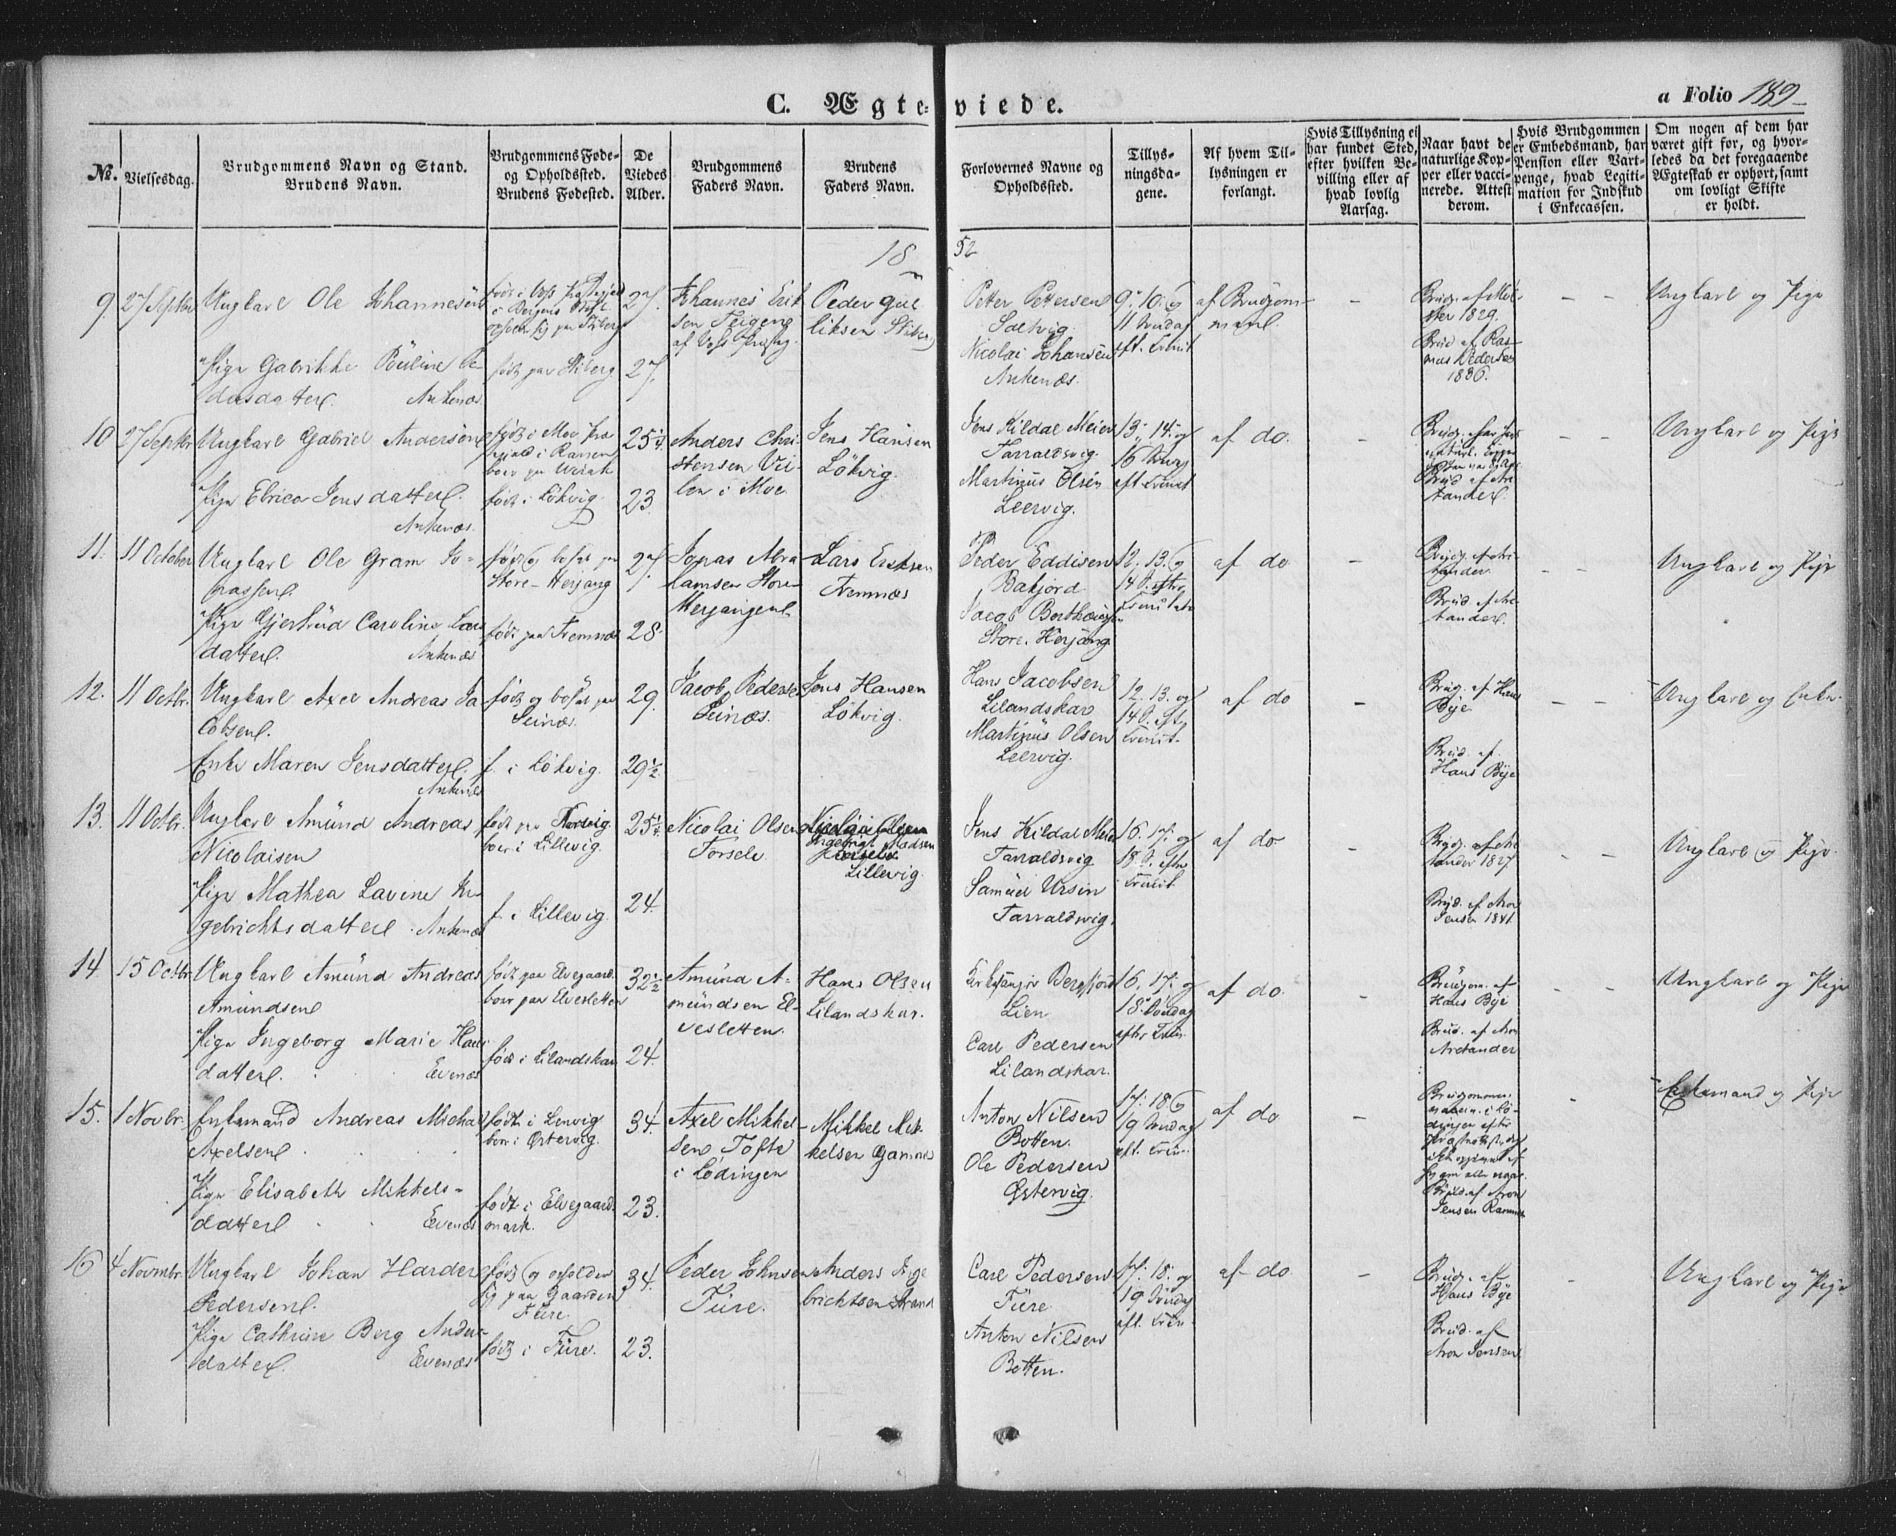 C. Ægteviede.
a Folio 189
No.
Vielsesdag.
Brudgommens Navn og Stand.
Brudens Navn.
Brudgommens Føde-
og Opholdssted.
Brudens Fødested.
De
Viedes
Alder.
Brudgommens
Faders Navn.
Brudens
Faders Navn.
Forlovernes Navne og
Opholdssted.
Tillys-
ningsda-
gene.
Af hvem Til-
lysningen er
forlangt.
Hvis Tillysning ei
har fundet Sted,
efter hvilken Be-
villing eller af
hvad lovlig
Aarsag.
Naar havt de
naturlige Kop-
per eller vacci-
nerede. Attest
derom.
Hvis Brudgommen
er Embedsmand, har
Pension eller Vart-
penge, hvad Legiti-
mation for Indskud
i Enkecassen.
Om nogen af dem har
været gift for, og hvor-
ledes da det foregaaende
Ægteskab er ophørt, samt
om lovligt Skifte
er holdt.
1852
9 27 Septbr
Ungkarl Ole Johannesen
Pige Gabrikke Pauline Pe-
dersdatter. Ankenæs
født paa Stiberg
27.
27.
Johannes Erik
sen Teigen
Peder Gul
liksen Stiberg
Petter Pettersen
Soelvig.
Nicolai Johansen
Ankenæs.
9. 10. og
11 Søndag
eft. Trinit
af Brudgom-
men.
Brudg. af Mei-
ster 1829.
Brud af Ras-
mus Pedersen
1836.
Ungkarl og Pige
10 27 Septbr
Ungkarl Gabriel Andersen
Pige Elrica Jensdatter.
Ankenæs.
født i Løkvig.
25 1/4
23
Anders Chri
stensen Vei-
len i Moe
Jens Hansen
Løkvig.
Jens Kildal Meier
Taraldsvig.
Martinus Olsen
Leervig.
13, 14 og
eft Trinit
af do.
Ungkarl og Pige
11. 11 October
Ungkarl Ole Gram Jo-
nassen.
Pige Gjertrud Caroline Lars
datter. Ankenæs
født og bosat paa
Store-Herjang
født paa Tremnæs
27.
28.
Jonas Abra
hamsen Store
Herjangen
Lars Eriksen
Tremnæs
Peder Eddisen
Bakjord
Jacob Bertheusen
Store. Herjang
12, 13. og
14 S. efter
Trinitatis
af do
Brudg. af Ari-
tander.
Brud. af Are-
tander.
Ungkarl og Pige
12. 11 Octbr.
Ungkarl Axel Andreas Ja
cobsen.
Enke Maren Jensdatter.
Ankenæs
født og bosat paa
Seinæs.
f. i Løkvig.
29.
29 1/2
Jacob Pedersen
Seinæs.
Jens Hansen
Løkvig.
Hans Jacobsen
Lilandskar
Martinus Olsen
Leervig.
12. 13. og
14 S. eft
Trinit.
af do
Brudg. af Hans
Bye
Brud. af
Hans Bye
Ungkarl og Enke.
13. 11 Octbr.
Ungkarl Amund Andreas
Nicolaisen
Pige Mathea Lavine In-
gebrichtsdatter. Ankenæs
boer i Lillevig.
f. i Lillevig.
25 1/4
24.
Nicolai Olsen
Forsele.
Ingebrigt Madsen
Lillevig.
Jens Kildal Meier
Taraldsvig
Samuel Ursin
Taraldsvig.
16. 17. og
18 S. efter
Trinit.
af do
Brudg. af Ari
tander 1827
Brud. af Aron
Jensen 1841
Ungkarl og Pige.
14. 15 Octbr.
Ungkarl Amund Andreas
Amundsen
Pige Ingeborg Marie Hans
datter. Evenæs
født paa Elvegaard.
boer paa Elvesletten
født i Lilandskar
32 1/2
24.
Amund A-
mundsen El-
vesletten.
Hans Olsen
Lilandskar.
Kirkesanger Bergfjord
Lien
Carl Pedersen
Lilandskar.
16. 17. og
18. Søndag
efter Trin.
af do.
Brudgom. af
Hans Bye
Brud. af Aron
Aretander
Ungkarl og Pige
15. 1 Novbr.
Enkemand Andreas Michal
Axelsen.
Pige Elisabeth Mikkels-
datter Evenæs
født i Lenvig
boer i Østervig.
født i Elvegaard
mark.
34.
23.
Axel Mikkel
sen Tofte
i Lødingen
Mikkel Mik-
kelsen Gammel
Anton Nilsen
Botten.
Ole Pedersen
Østervig.
17. 18. og
19 Søndag
eft. Trin.
af do
Brud. af Aron
Jensen
Enkemand og Pige
16 4 Novmbr.
Ungkarl Johan Harder
Pedersen.
Pige Cathrine Berg Anders
datter. Evenæs
født og opholder
sig paa Gaarden
Fure
født i Fure.
34.
23.
Peder Johnsen
Fure.
Anders Inge
brichtsen Strand
Carl Pedersen
Fure
Anton Nilsen
Botten.
17. 18. og
19 Søndag
eft. Trin.
af do
Brudg. af
Hans Bye
Brud. af
Aron Jensen
Ungkarl og Pige